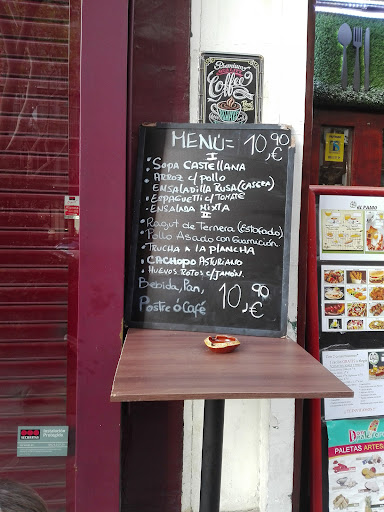 Premium
Coffee
MENÚ= 10,90 €
I
• SOPA CASTELLANA
• ARROZ c/pollo
• ENSALADILLA RUSA (CASERA)
• ESPAGUETTI c/TOMATE
• ENSALADA MIXTA
II
• Ragut de Ternera (Estofado)
• Pollo Asado con Guarnición
• TRUCHA A LA PLANCHA
• CACHOPO ASTURIANO
• HUEVOS ROTOS c/JAMÓN.
Bebida, Pan,
Postre ó Café
10,90 €
SECURITAS
PALETAS ARTES